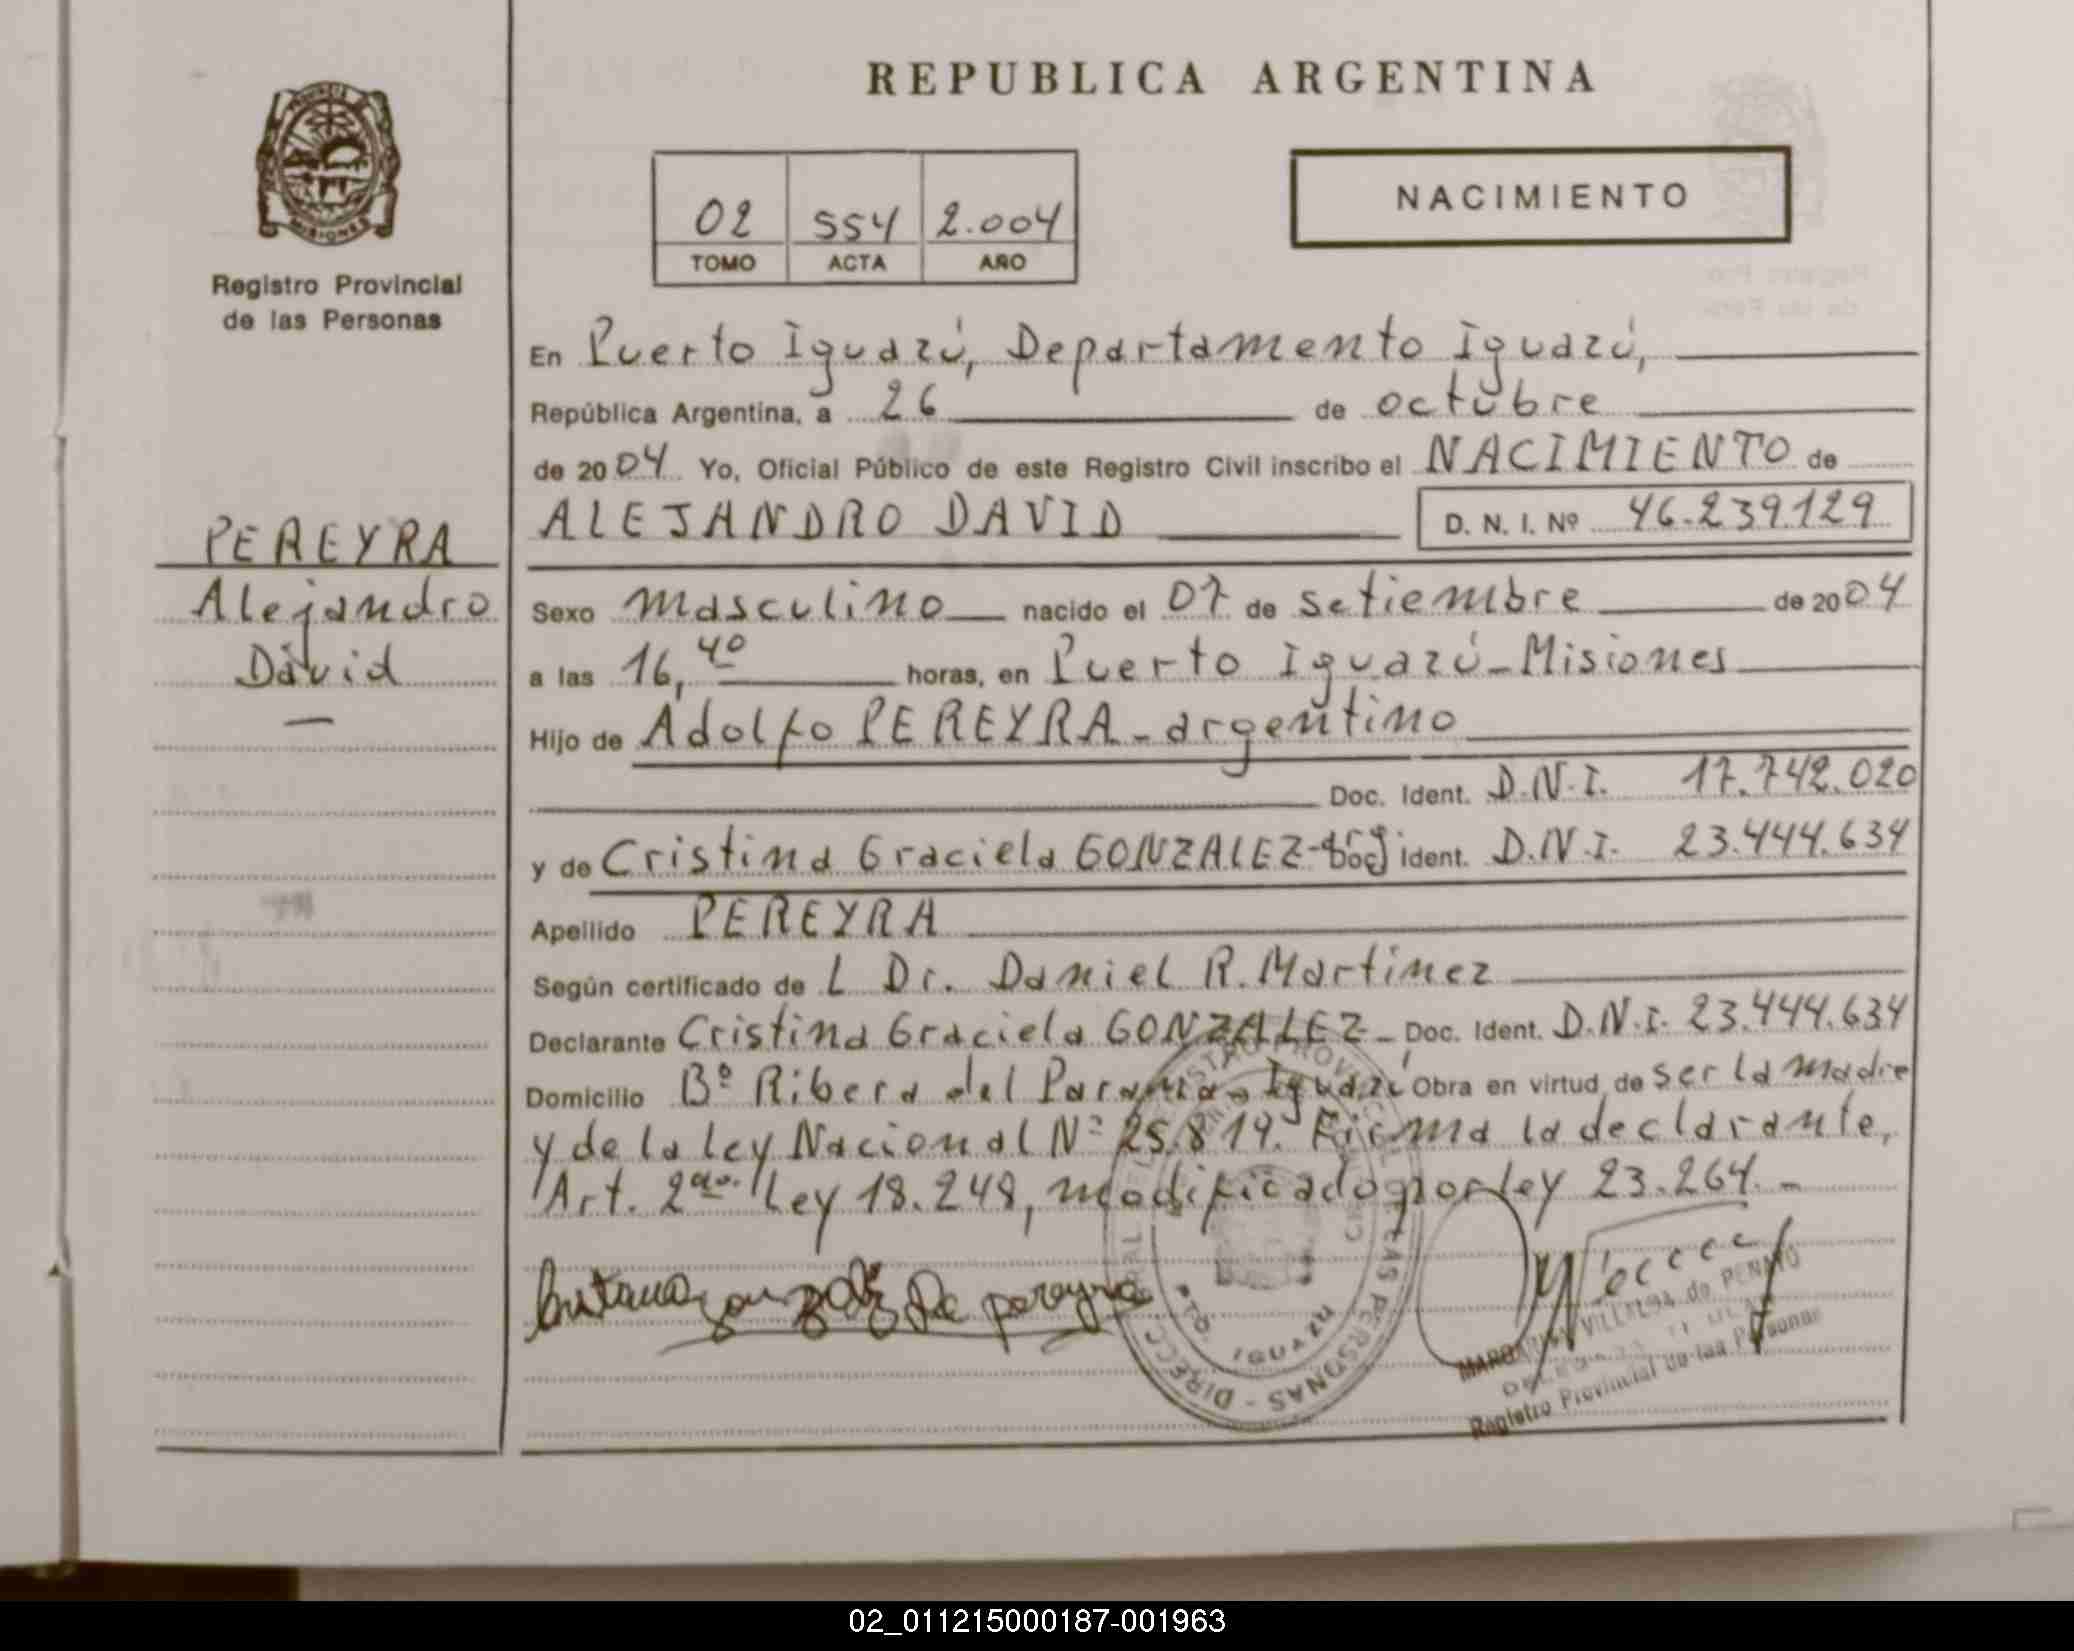 REPUBLICA ARGENTINA
PROVINCIA DE
MISIONES
Registro Provincial
de las Personas
NACIMIENTO
02 554 2.004
TOMO ACTA AÑO
En Puerto Iguazú, Departamento Iguazú,
República Argentina, a 26 de octubre
de 2004 Yo, Oficial Público de este Registro Civil inscribo el NACIMIENTO de
ALEJANDRO DAVID D. N. I. Nº 46.239.129
PEREYRA
Alejandro
David
Sexo masculino nacido el 07 de setiembre de 2004
a las 16,40 horas, en Puerto Iguazú - Misiones
Hijo de Adolfo PEREYRA - argentino
Doc. Ident. D.N.I. 17.742.020
y de Cristina Graciela GONZALEZ - arg Doc. Ident. D.N.I. 23.444.634
Apellido PEREYRA
Según certificado de L Dr. Daniel R. Martinez
Declarante Cristina Graciela GONZALEZ - Doc. Ident. D.N.I. 23.444.634
Domicilio Bº Ribera del Parana - Iguazú Obra en virtud de ser la madre
y de la ley Nacional Nº 25.819. Firma la declarante,
Art. 2do. Ley 18.248, modificado por ley 23.264. -
Cristina gonzalez de pereyra
IGUAZU
MARGARITA VILLALBA de PENAYO
Registro Provincial de las Personas
02_011215000187-001963